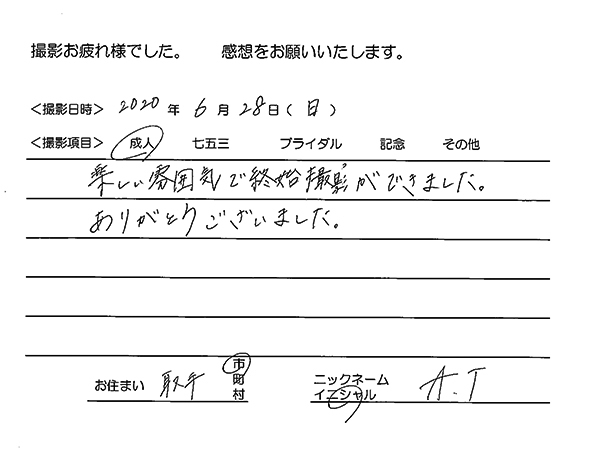 撮影お疲れ様でした。 感想をお願いいたします。
＜撮影日時＞ 2020 年 6 月 28 日（日）
＜撮影項目＞ 成人 七五三 ブライダル 記念 その他
楽しい雰囲気で終始撮影ができました。
ありがとうございました。
お住まい 取手 市町村
ニックネーム
イニシャル A.T